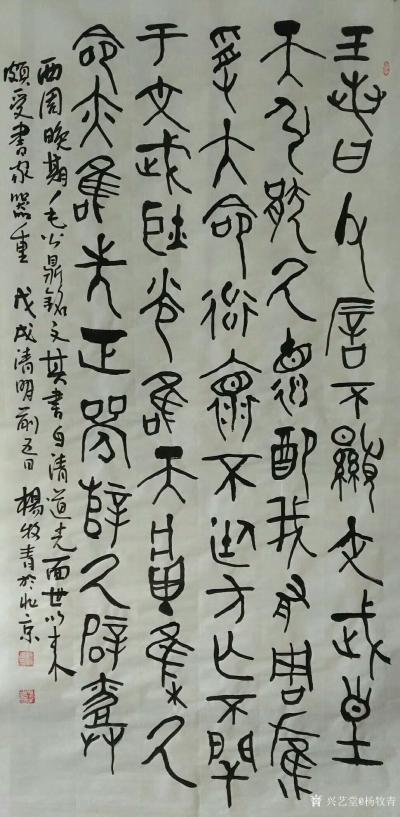 王若曰父厝不顯文武皇
天引猒厥德配我有周膺
受大命率懷不廷方亡不閈
于文武耿光唯天將集厥
命亦唯先正辥厥辟
西周晚期毛公鼎銘文其書自清道光面世以来
頗受書家器重 戊戌清明前五日 楊牧青於北京
兴艺堂@杨牧青